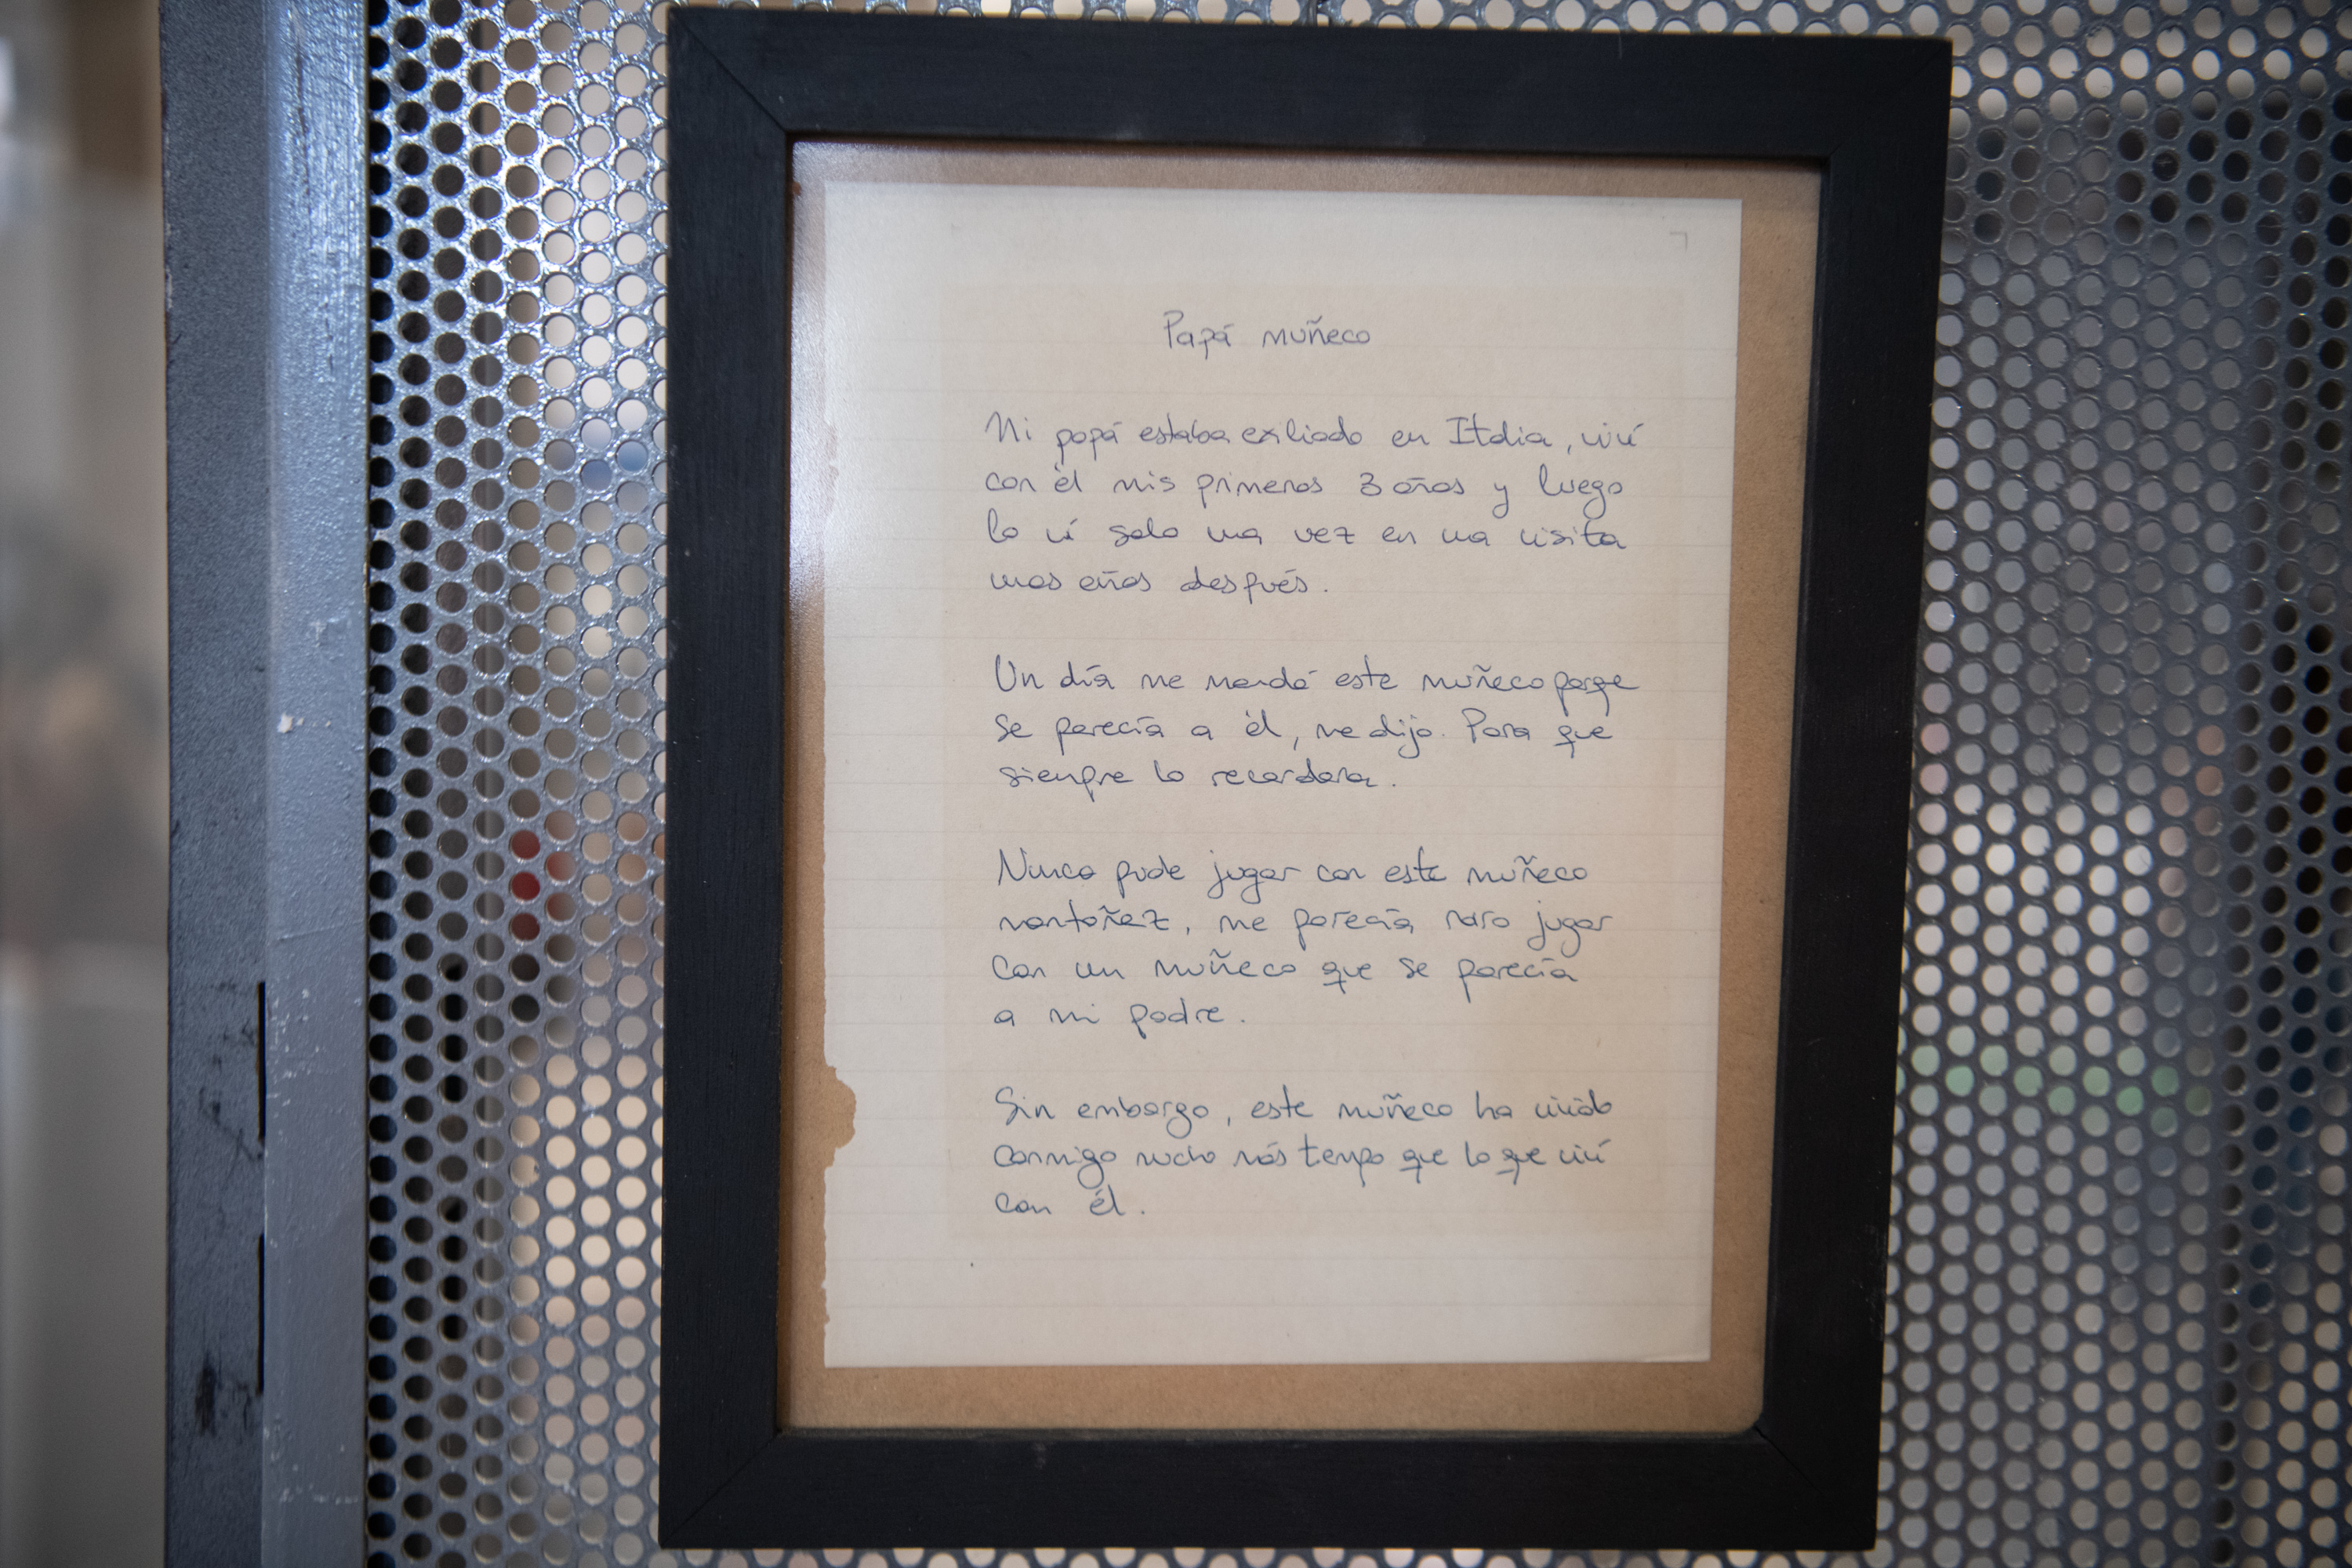 Papá muñeco
Mi papá estaba exiliado en Italia, viví
con él mis primeros 3 años y luego
lo ví solo una vez en una visita
unos años después.
Un día me mandó este muñeco porque
se parecía a él, me dijo. Para que
siempre lo recordara.
Nunca pude jugar con este muñeco
montañez, me parecía raro jugar
con un muñeco que se parecía
a mi padre.
Sin embargo, este muñeco ha vivido
conmigo mucho más tiempo que lo que viví
con él.